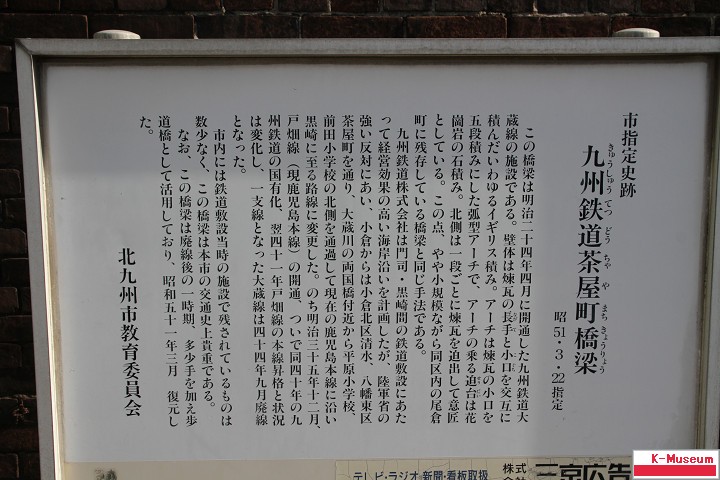 市指定史跡
九州鉄道茶屋町橋梁
きゅうしゅうてつどうちゃやまちきょうりょう
昭51・3・22指定
この橋梁は明治二十四年四月に開通した九州鉄道大
蔵線の施設である。壁体は煉瓦の長手と小口を交互に
積んだいわゆるイギリス積み。アーチは煉瓦の小口を
五段積みにした弧型アーチで、アーチの乗る迫台は花
崗岩の石積み。北側は一段ごとに煉瓦を迫出して意匠
としている。この点、やや小規模ながら同区内の尾倉
町に残存している橋梁と同じ手法である。
九州鉄道株式会社は門司・黒崎間の鉄道敷設にあた
って経営効果の高い海岸沿いを計画したが、陸軍省の
強い反対にあい、小倉からは小倉北区清水、八幡東区
茶屋町を通り、大蔵川の両国橋付近から平原小学校、
前田小学校の北側を通過して現在の鹿児島本線に沿い
黒崎に至る路線に変更した。のち明治三十五年十二月、
戸畑線（現鹿児島本線）の開通、ついで同四十年の九
州鉄道の国有化、翌四十一年戸畑線の本線昇格と状況
は変化し、一支線となった大蔵線は四十四年九月廃線
となった。
市内には鉄道敷設当時の施設で残されているものは
数少なく、この橋梁は本市の交通史上貴重である。
なお、この橋梁は廃線後の一時期、多少手を加え歩
道橋として活用しており、昭和五十一年三月　復元し
た。
北九州市教育委員会
テレビ・ラジオ・新聞・看板取扱
株式会社
三京広告
K-Museum